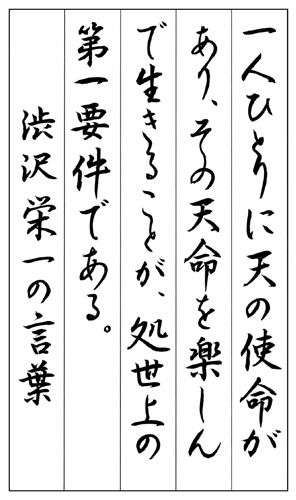 一人ひとりに天の使命が
あり、その天命を楽しん
で生きることが、処世上の
第一要件である。
渋沢栄一の言葉